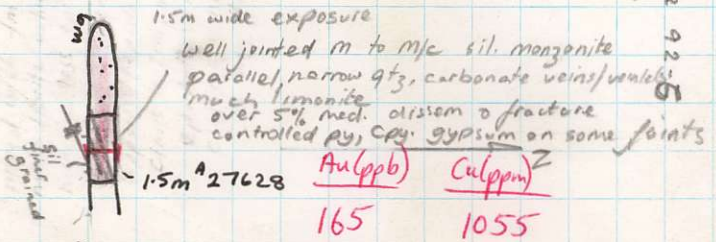 1.5m wide exposure
well jointed m to m/c sil. monzonite
parallel, narrow qtz, carbonate veins/veinlets
much limonite
over 5% med. dissem & fracture
controlled py, cpy. gypsum on some joints
mg
sil
finer
grained
1.5m A27628
Au(ppb) Cu(ppm)
165 1055
Z
92-5